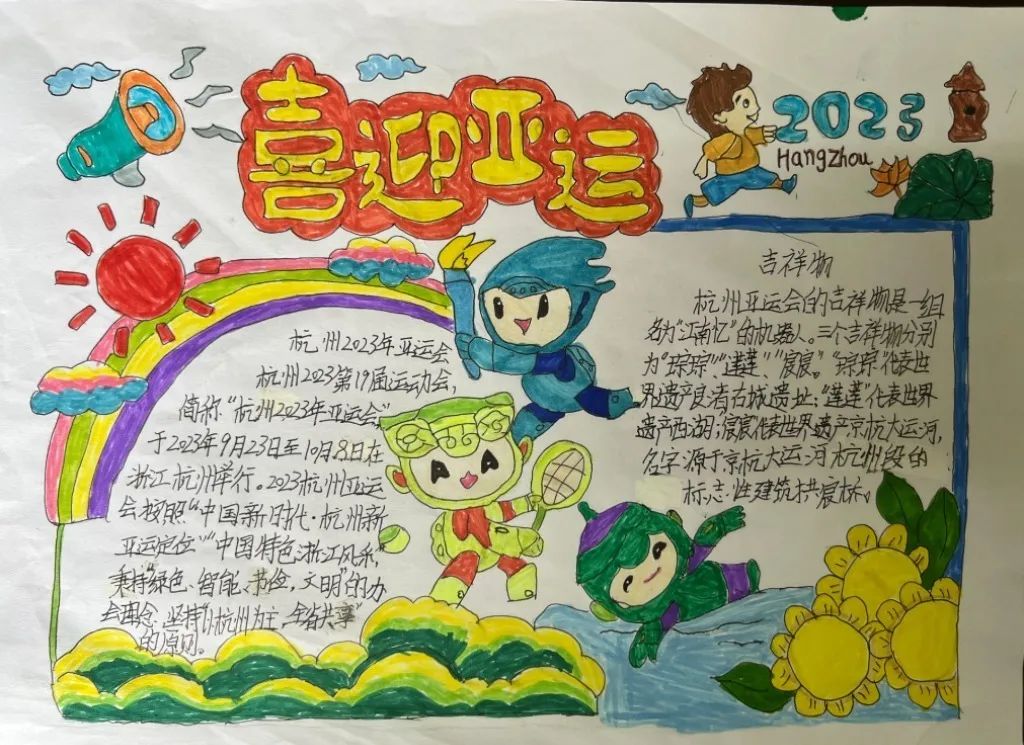 喜迎亚运
2023
Hangzhou
杭州2023年亚运会
杭州2023第19届运动会,
简称“杭州2023年亚运会”
于2023年9月23日至10月8日在
浙江杭州举行。2023杭州亚运
会按照“中国新时代·杭州新
亚运定位”“中国特色浙江风采”
秉持“绿色、智能、节俭,文明”的办
会理念,坚持“以杭州为主,全省共享”
的原则。
吉祥物
杭州亚运会的吉祥物是一组
名为“江南忆”的机器人。三个吉祥物分别
为“琮琮”、“莲莲”、“宸宸”。“琮琮”代表世
界遗产良渚古城遗址;“莲莲”代表世界
遗产西湖;宸宸代表世界遗产京杭大运河,
名字源于京杭大运河杭州段的
标志性建筑拱宸桥。